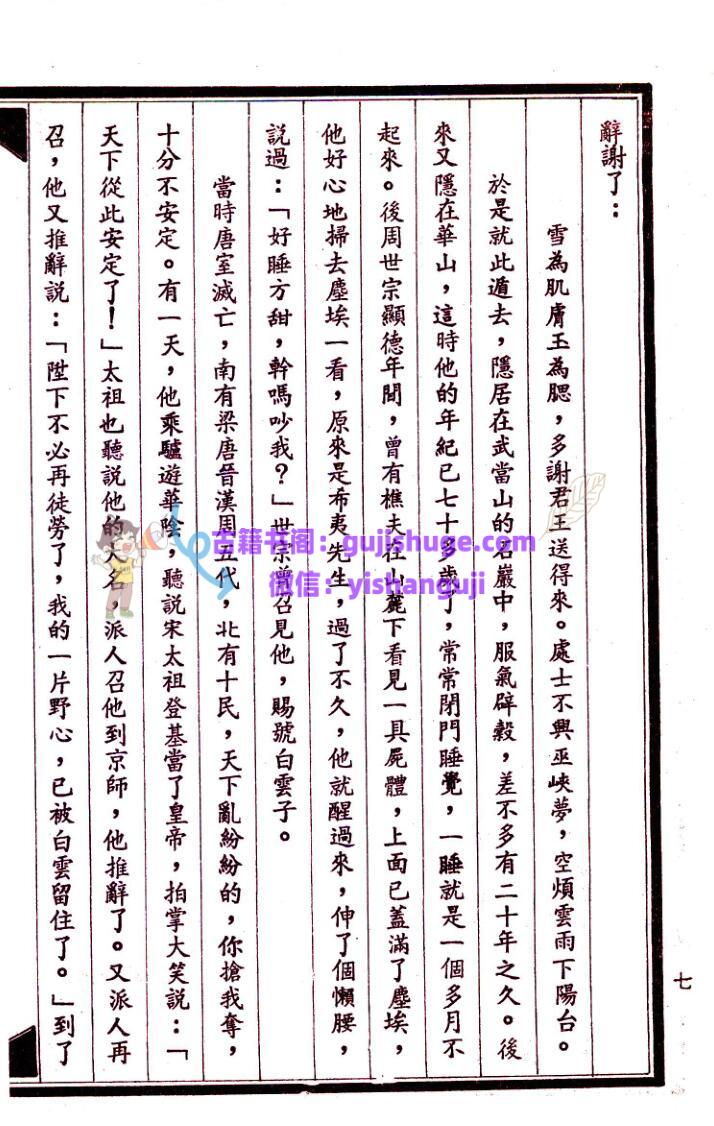 辭謝了：
雪為肌膚玉為腮，多謝君王送得來。處士不興巫峽夢，空煩雲雨下陽台。
於是就此遁去，隱居在武當山的石巖中，服氣辟穀，差不多有二十年之久。後
來又隱在華山，這時他的年紀已七十多歲了，常常閉門睡覺，一睡就是一個多月不
起來。後周世宗顯德年間，曾有樵夫在山麓下看見一具屍體，上面已蓋滿了塵埃，
他好心地掃去塵埃一看，原來是希夷先生，過了不久，他就醒過來，伸了個懶腰，
說過：「好睡方甜，幹嗎吵我？」世宗曾召見他，賜號白雲子。
當時唐室滅亡，南有梁唐晉漢周五代，北有十民，天下亂紛紛的，你搶我奪，
十分不安定。有一天，他乘驢遊華陰，聽說宋太祖登基當了皇帝，拍掌大笑說：「
天下從此安定了！」太祖也聽說他的大名，派人召他到京師，他推辭了。又派人再
召，他又推辭說：「陛下不必再徒勞了，我的一片野心，已被白雲留住了。」到了
七
古籍书阁：gujishuge.com
微信：yishanguji